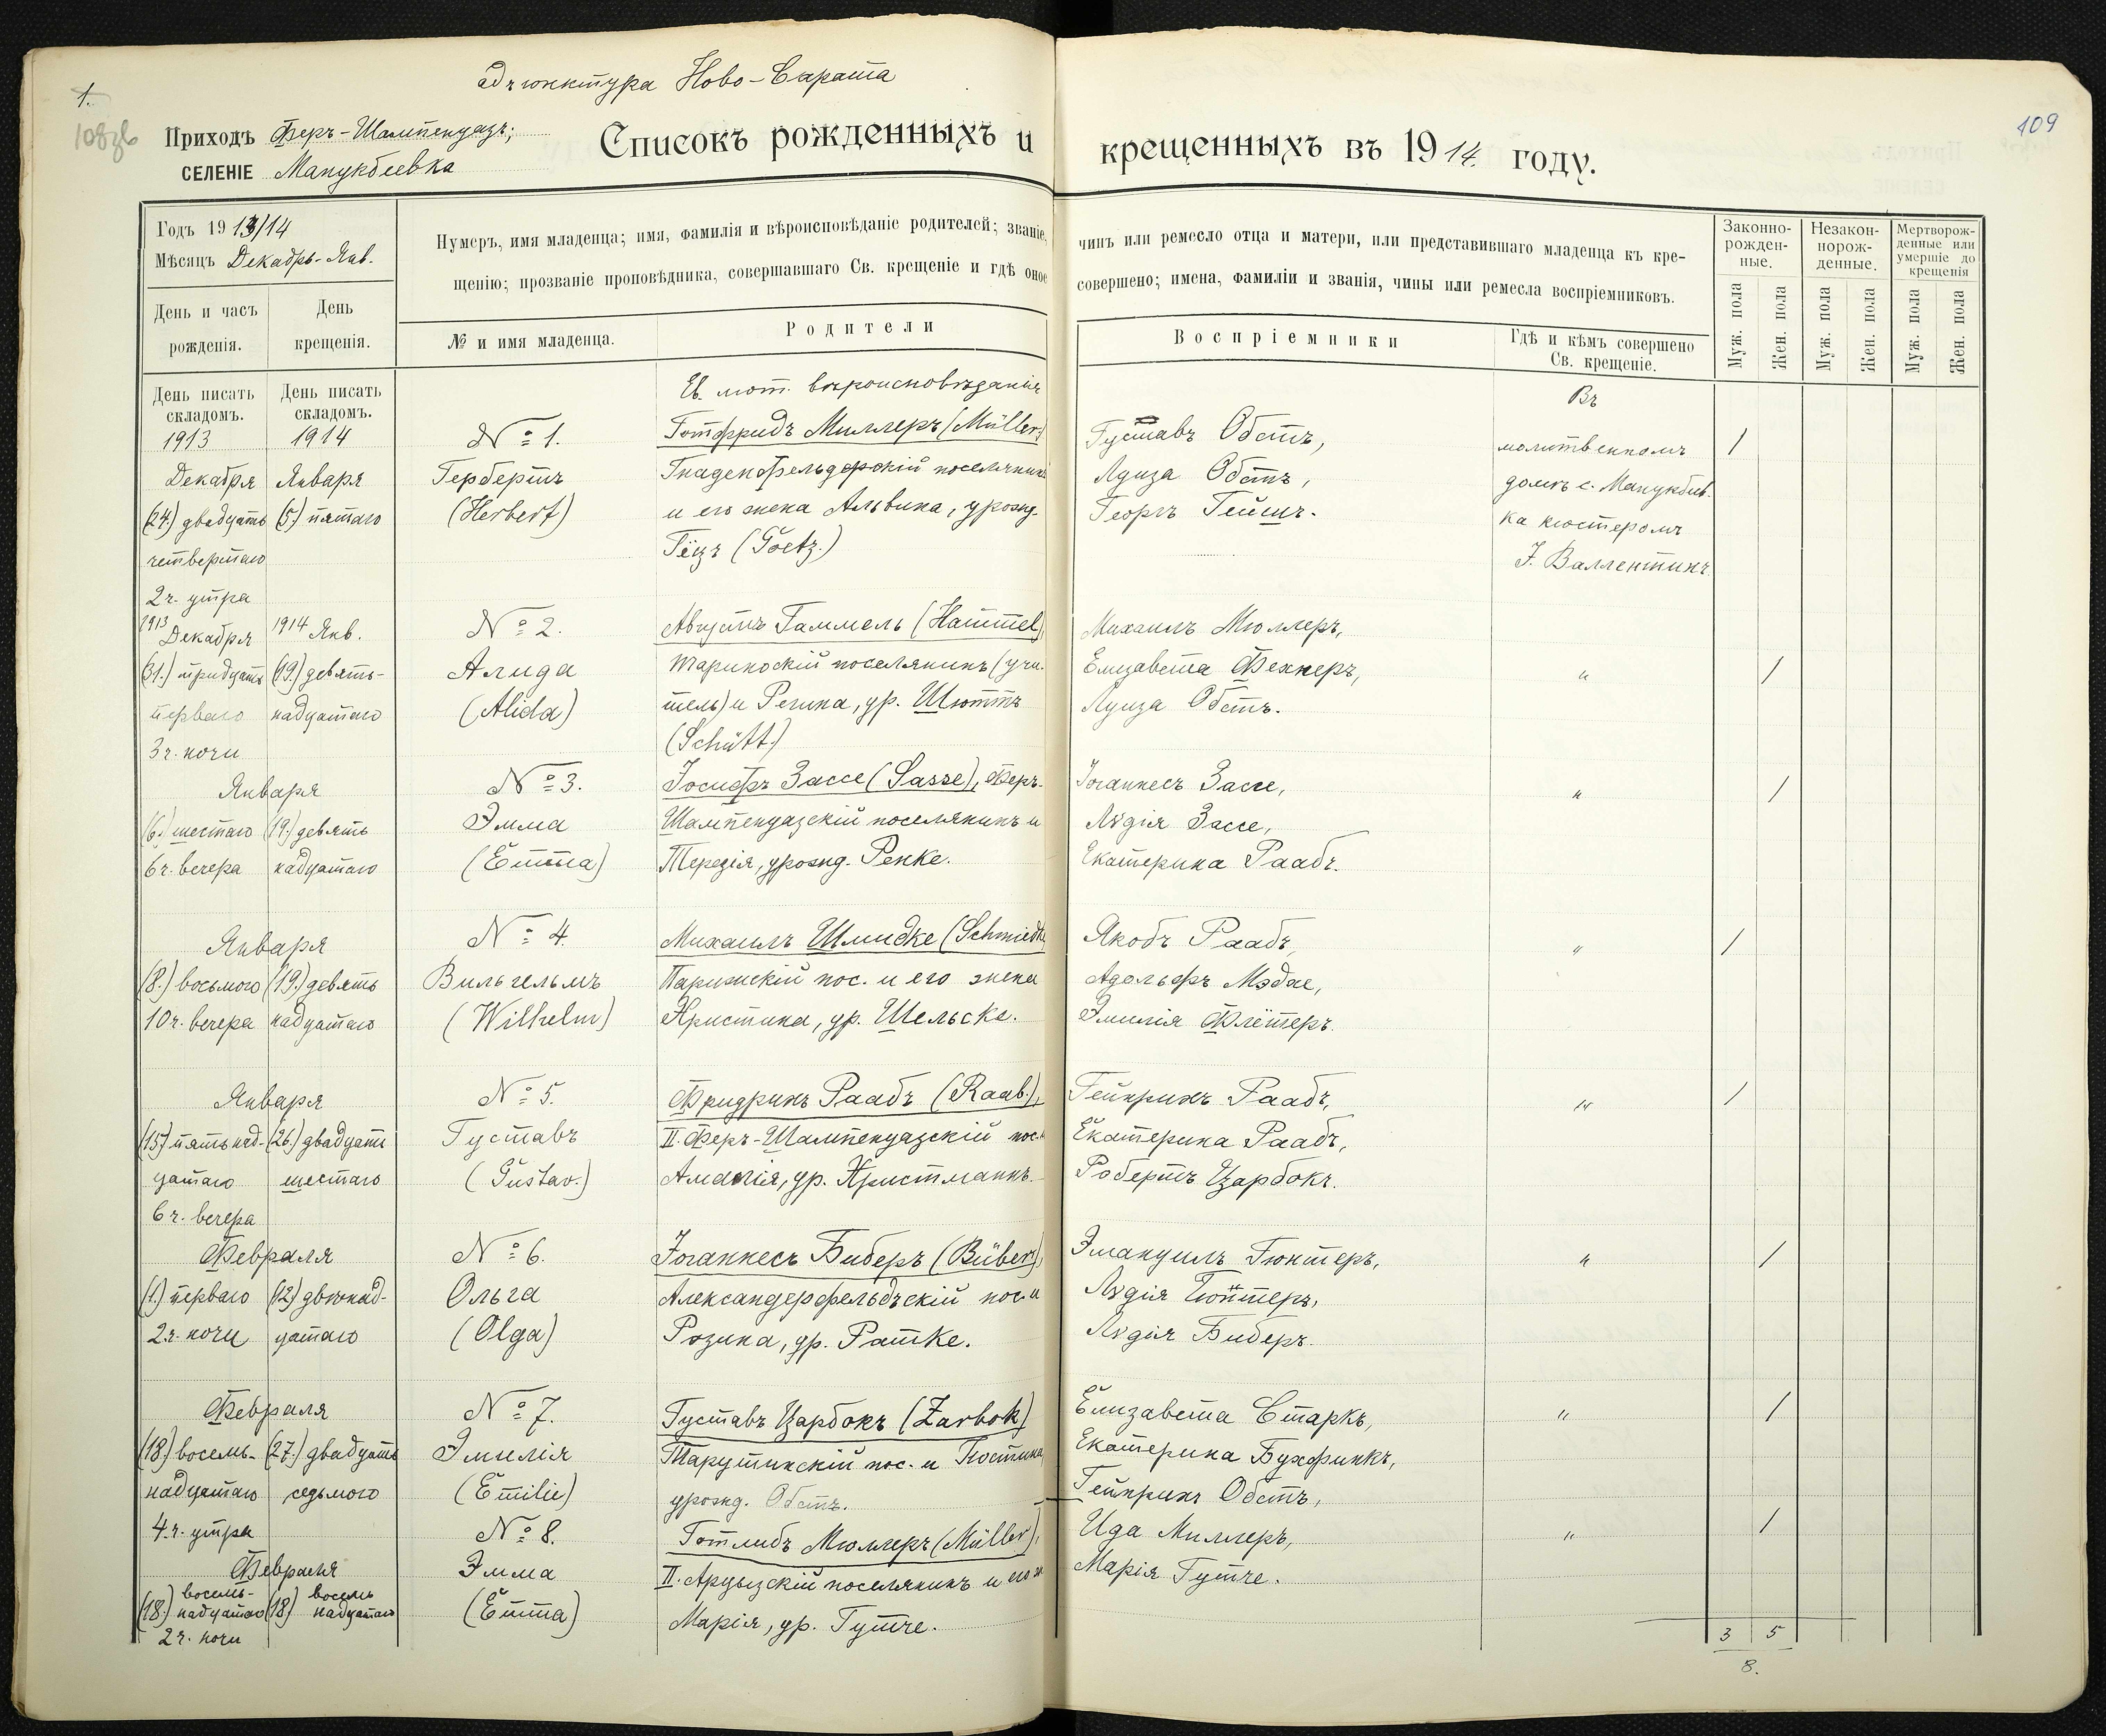 1.
адъюнктура Ново-Сарата
108 об
109
Приходъ Феръ-Шампенуазъ;
СЕЛЕНІЕ Манукбеевка
Списокъ рожденныхъ и крещенныхъ въ 1914. году.
Годъ 1913/14
Мѣсяцъ Декабрь-Янв.
День и часъ рожденія.
День крещенія.
Нумеръ, имя младенца; имя, фамилія и вѣроисповѣданіе родителей; званіе, чинъ или ремесло отца и матери, или представившаго младенца къ кре-
щенію; прозваніе проповѣдника, совершавшаго Св. крещеніе и гдѣ оное совершено; имена, фамиліи и званія, чины или ремесла воспріемниковъ.
№ и имя младенца.
Родители
Воспріемники
Гдѣ и кѣмъ совершено
Св. крещеніе.
Законно-
рожден-
ные.
Незакон-
норож-
денные.
Мертворож-
денные или
умершіе до
крещенія
Муж. пола
Жен. пола
Муж. пола
Жен. пола
Муж. пола
Жен. пола
День писать
складомъ.
День писать
складомъ.
1913
Декабря
(24.) двадцать
четвертаго
2 ч. утра
1914
Января
(5.) пятаго
№ 1.
Гербертъ
(Herbert)
Ев. лют. вѣроисповѣданія
Готфридъ Миллеръ (Müller)
Гнаденфельдерскій поселянинъ
и его жена Альвина, урожд.
Гёцъ (Goetz.)
Густавъ Обстъ,
Луиза Обстъ,
Георгъ Гейшъ.
Въ
молитвенномъ
домѣ с. Манукбеев-
ка кюстеромъ
І. Валлентинъ.
/
1913
Декабря
(31.) тридцать
перваго
3 ч. ночи
1914 Янв.
(19.) девять-
надцатаго
№ 2.
Алида
(Alida)
Августъ Гаммель (Hammel)
поселянинъ (учи-
тель) и Регина, ур. Шюттъ
(Schütt.)
Михаилъ Мюллеръ,
Елизавета Фехнеръ,
Луиза Обстъ.
"
/
Января
(6.) шестаго
6 ч. вечера
(19.) девять
надцатаго
№ 3.
Эмма
(Emma)
Іосифъ Зассе (Sasse), Феръ-
Шампенуазскій поселянинъ и
Терезія, урожд. Ренке.
Іоганнесъ Зассе,
Лѵдія Зассе,
Екатерина Раабъ.
"
/
Января
(8.) восьмого
10 ч. вечера
(19.) девять
надцатаго
№ 4.
Вильгельмъ
(Wilhelm)
Михаилъ Шмидке (Schmiedke
Парижскій пос. и его жена
Христина, ур. Шельске.
Якобъ Раабъ,
Адольфъ Мэдае,
Эмилія Флётеръ.
"
/
Января
(15.) пятьнад-
цатаго
6 ч. вечера
(26.) двадцать
шестаго
№ 5.
Густавъ
(Gustav.)
Фридрихъ Раабъ (Raab.),
II. Феръ-Шампенуазскій пос. и
Амалія, ур. Христманнъ.
Гейнрихъ Раабъ,
Екатерина Раабъ,
Робертъ Царбокъ.
"
/
Февраля
(1.) перваго
2 ч. ночи
(12) двѣнад-
цатаго
№ 6.
Ольга
(Olga)
Іоганнесъ Биберъ (Büber),
Александерфельдскій пос. и
Розина, ур. Ратке.
Эмануилъ Гюнтеръ,
Лѵдія Гюнтеръ,
Лѵдія Биберъ.
"
/
Февраля
(18.) восемь-
надцатаго
4 ч. утра
(27.) двадцать
седьмого
№ 7.
Эмилія
(Emilie)
Густавъ Царбокъ (Zarbok)
Тарутинскій пос. и Юстина
урожд. Обстъ.
Елизавета Старкъ,
Екатерина Бухфинкъ,
Гейнрихъ Обстъ,
"
/
Февраля
(18.) восемь-
надцатаго
2 ч. ночи
(18) восемь
надцатаго
№ 8.
Эмма
(Emma)
Готлибъ Мюллеръ (Müller),
II. Арцызскій поселянинъ и его ж
Марія, ур. Гутче.
Ида Миллеръ,
Марія Гутче.
"
/
3 5
8.